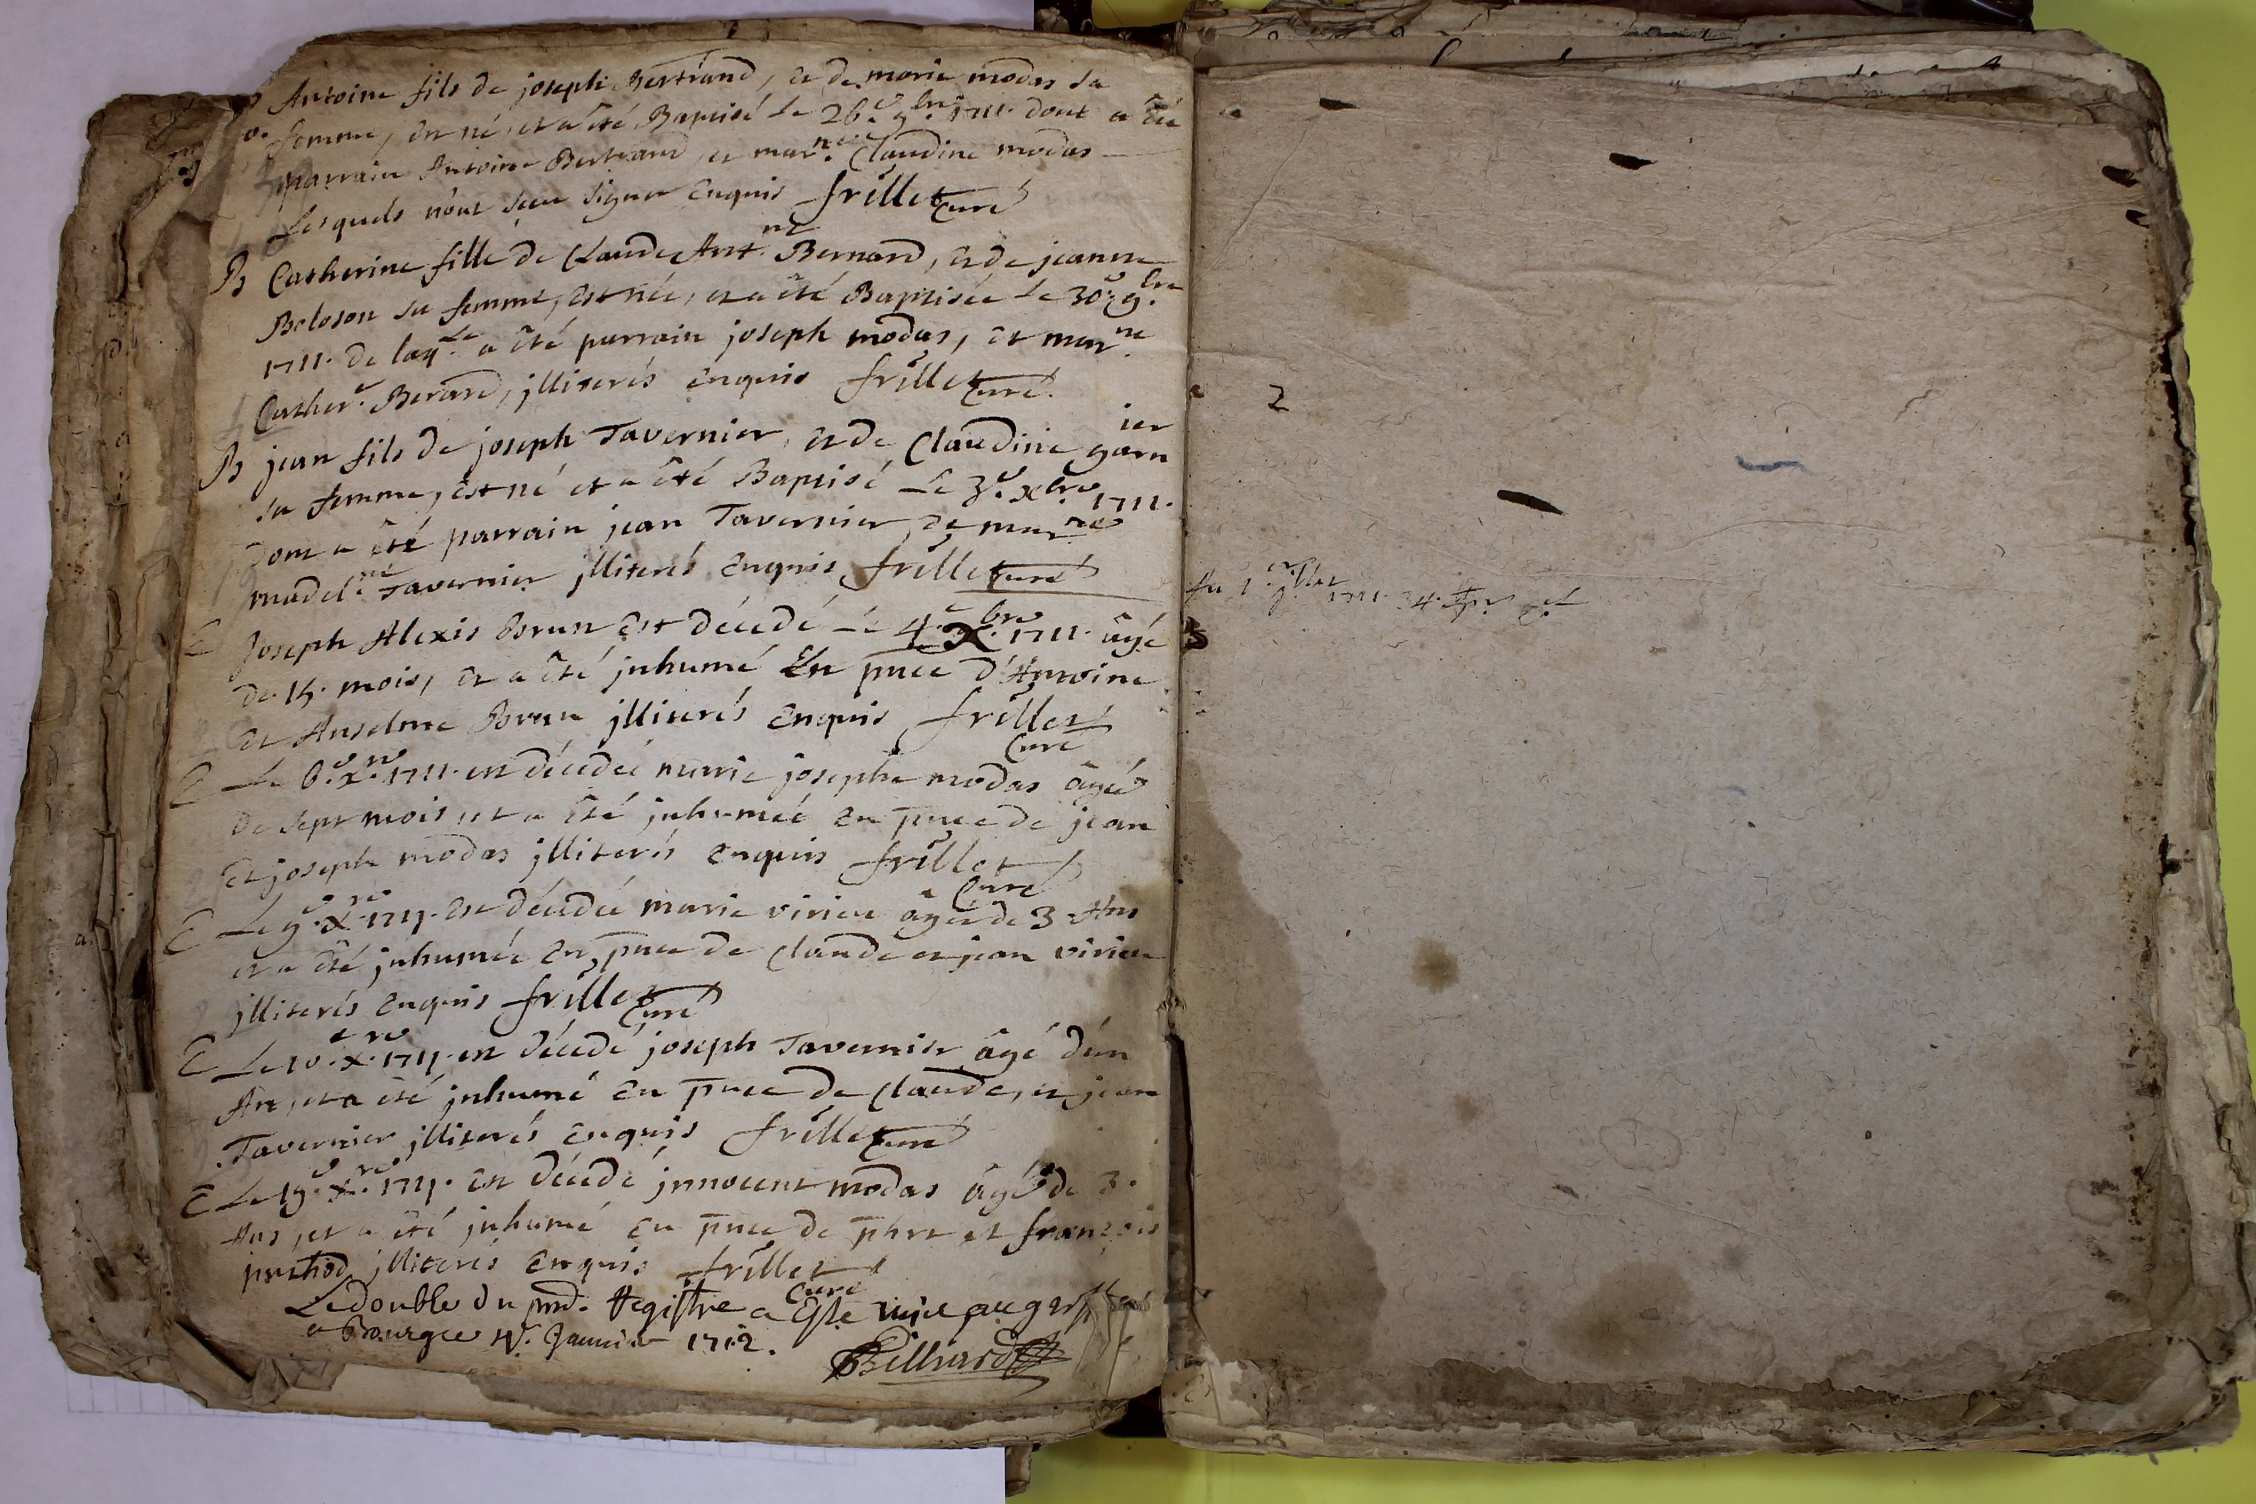 Antoine fils de joseph Bertrand, et de marie modas sa
femme, est né, et a été Baptisé le 26.e 9.bre 1711. dont a été
parrain Antoine Bertrand, et mar.ne Claudine modas
Lesquels n'ont sceu signer enquis frillet curé
B Catherine fille de Claude Ant.ne Bernard, et de jeanne
Beloson sa femme, est née, et a été Baptisée le 30.e 9.bre
1711. de laq.le a été parrain joseph modas, et mar.ne
Cather.e Berard, jlliterés enquis frillet curé.
B jean fils de joseph Tavernier, et de Claudine garnier
sa femme, est né et a été Baptisé Le 3.e xbre 1711.
dont a été parrain jean Tavernier, et mar.ne
madel.ne Tavernier jlliterés enquis frillet curé
E Joseph Alexis Brun est décedé Le 4.e X.bre 1711. âgé
de 15. mois, et a été jnhumé En pnce d'Antoine
et Anselme Brun jlliterés enquis frillet
Curé
E Le 6.e x.re 1711. est décedée marie josephe modas âgée
de sept mois, et a été jnhumée en pnce de jean
et joseph modas jlliterés enquis frillet
Curé
E Le 9.e X.re 1711. est décedée marie virieu âgée de 3 Ans
et a été jnhumée en pnce de Claude et jean virieu
jlliterés enquis frillet Curé
E Le 10.e x.re 1711. est décedé joseph Tavernier âgé d'un
An, et a été jnhumé en pnce de Claude, et jean
Tavernier jlliterés enquis frillet curé
E Le 19.e x.re 1711. est décedé jnnocent modas âgé de 3.
Ans, et a été jnhumé en pnce de phrt et françois
puthod jlliterés enquis frillet
Curé
Le double du pnt. Registre a Esté mise au greffe
a Bourg ce Janvier 1712.
Billiard
2